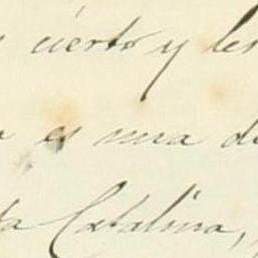 cierto y les
es una d
ta Catalina,